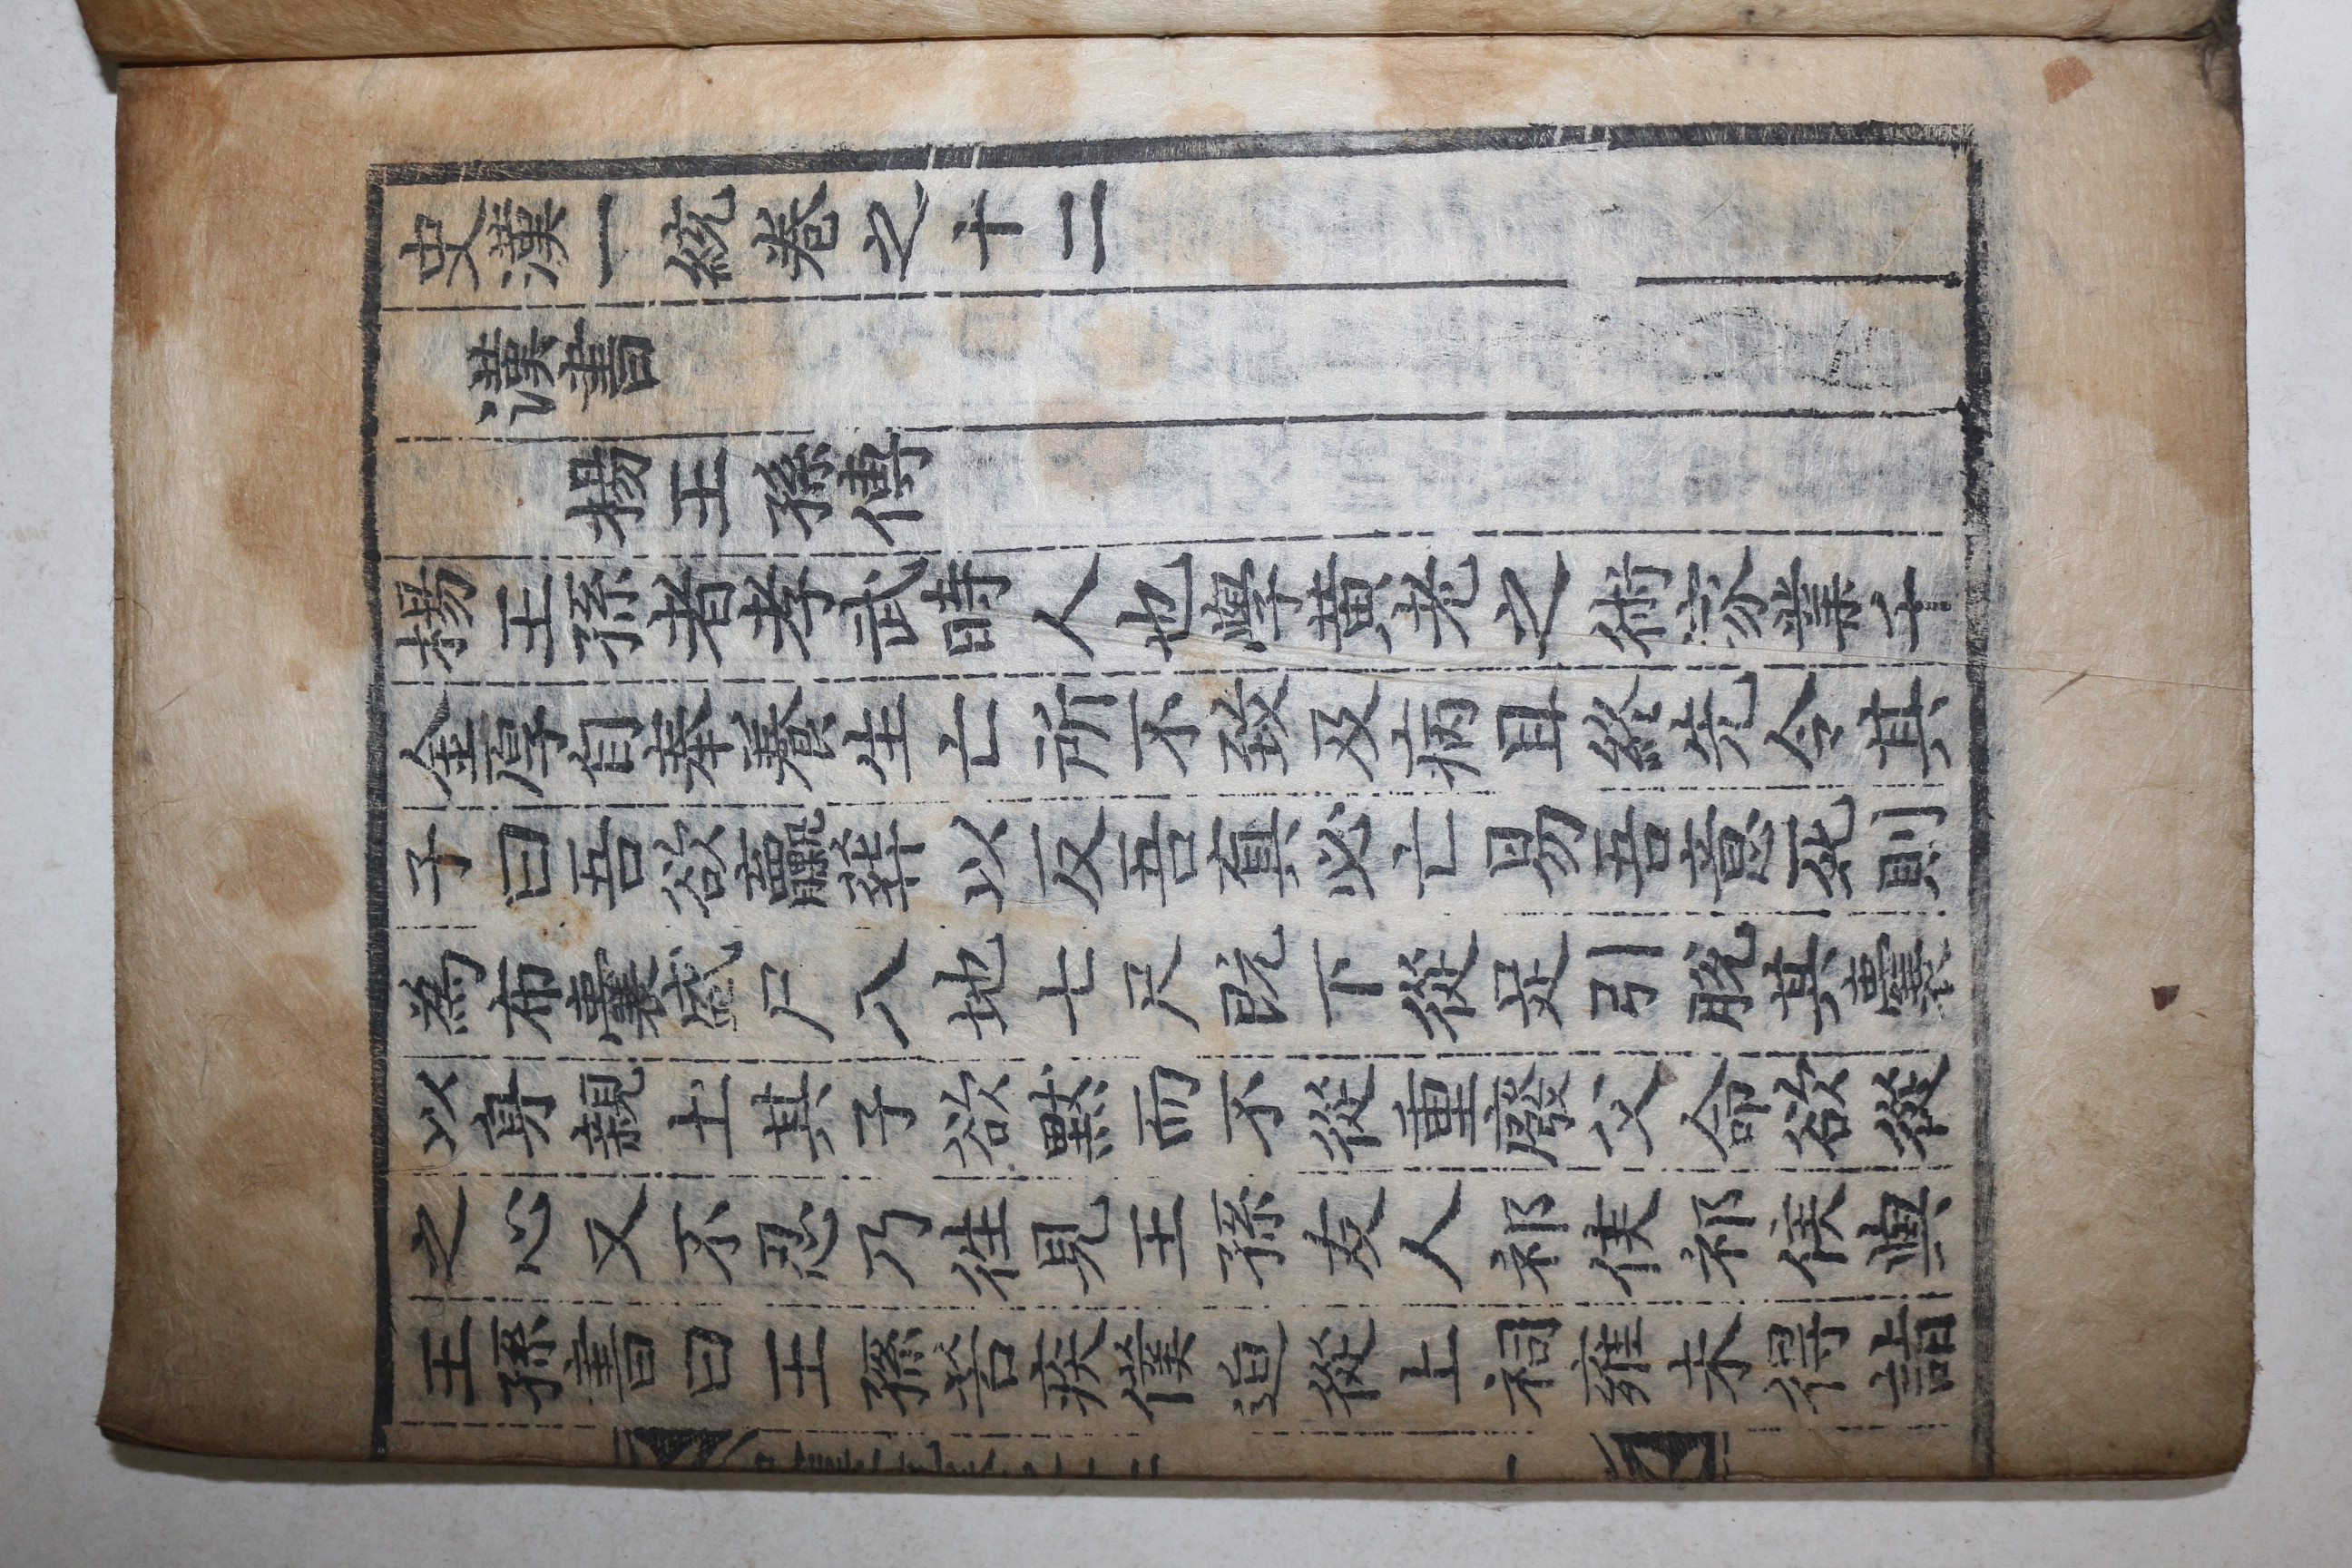 史漢一統卷之十二
漢書
楊王孫傳
楊王孫者孝武時人也學黃老之術家業千
金厚自奉養生亡所不致及病且終先令其
子曰吾欲臝葬以反吾真必亡易吾意死則
為布囊盛尸入地七尺既下從足引脫其囊
以身親土其子欲默而不從重廢父命欲從
之心又不忍乃往見王孫友人祁侯祁侯與
王孫書曰王孫苦疾僕迫從上祠雍未得詣